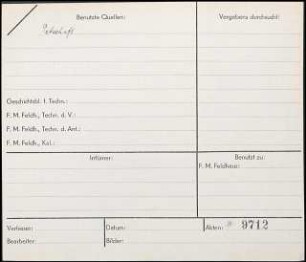 Benutzte Quellen:
Vergebens durchsucht:
Geschichtsbl. f. Techn.:
F. M. Feldh., Techn. d. V.:
F. M. Feldh., Techn. d. Ant.:
F. M. Feldh., Kal.:
Irrtümer:
Benutzt zu:
F. M. Feldhaus:
Verfasser:
Datum:
Akten:
9712
Bearbeiter:
Bilder: